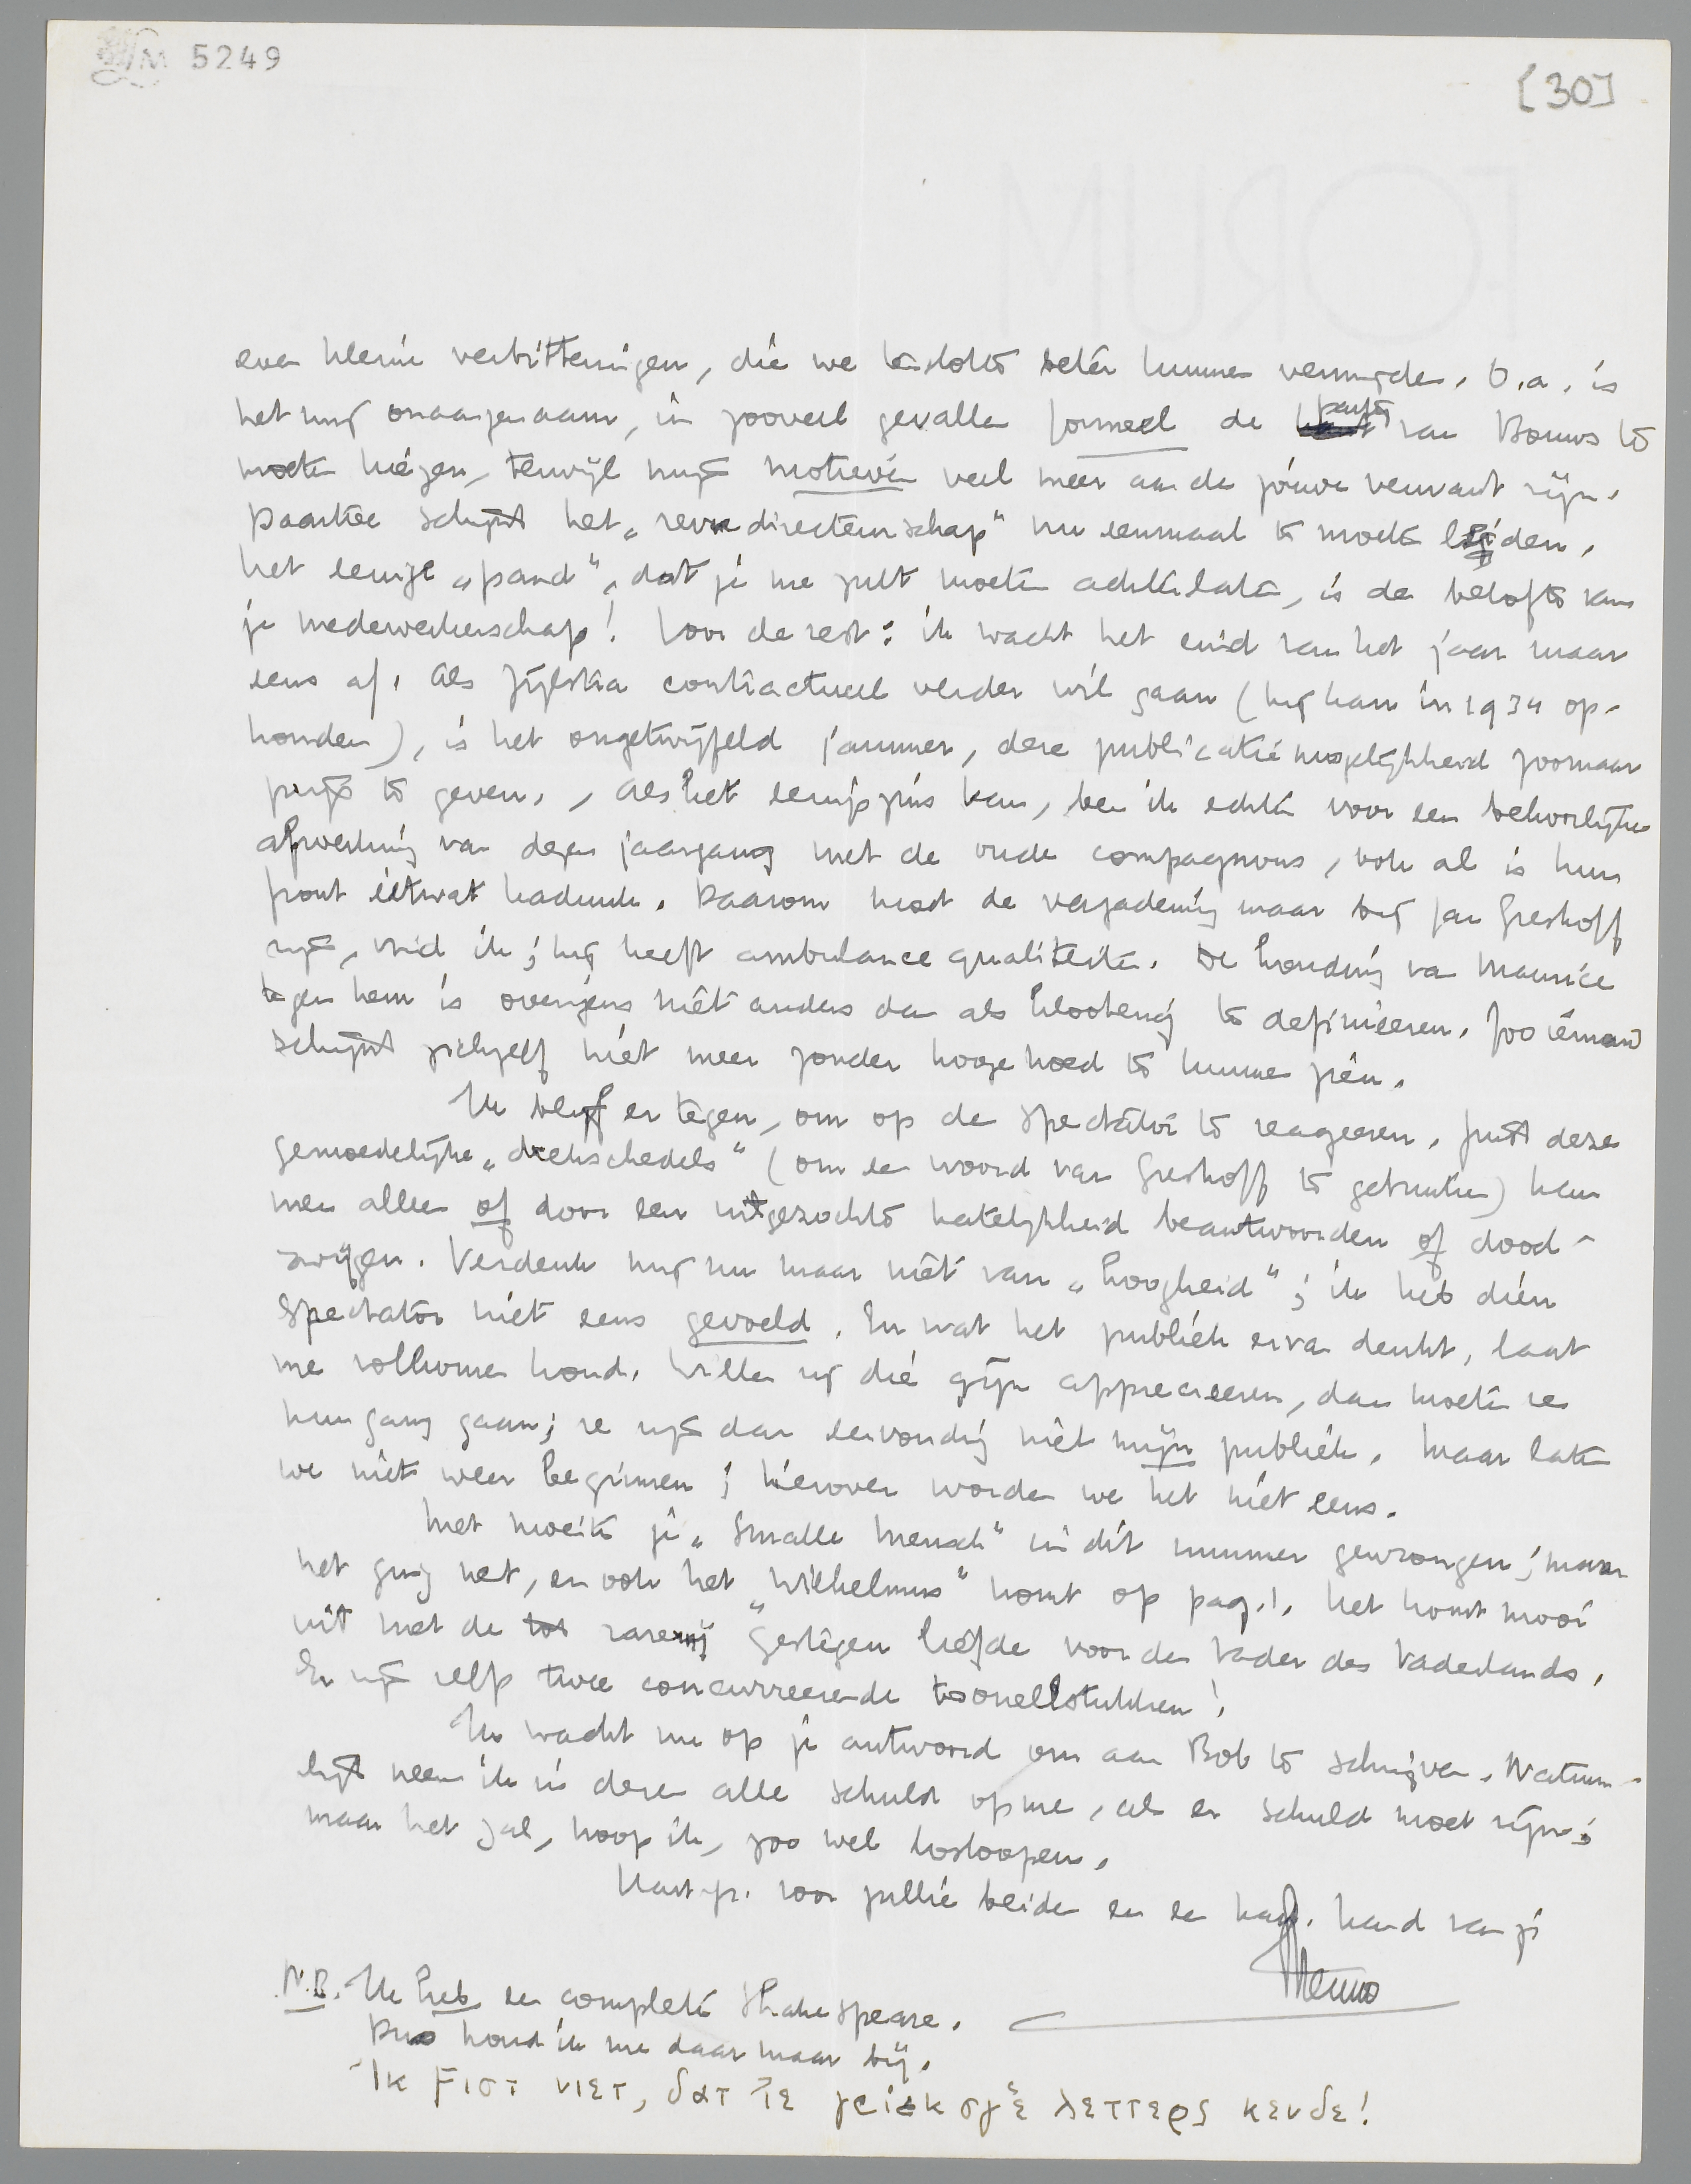 5249
[30]
FORUM
even kleine verbitteringen, die we tenslotte beter kunnen vermijden. O.a. is
het mij onaangenaam, in zooveel gevallen formeel de partij van Bouws te
moeten kiezen, terwijl mijn motieven veel meer aan de jouwe verwant zijn.
Daartoe schijnt het „revuedirecteurschap" nu eenmaal te moeten leiden.
Het eenige „pand", dat je me zult moeten achterlaten, is de belofte van
je medewerkerschap! Voor de rest: ik wacht het eind van het jaar maar
eens af. Als Zijlstra contractueel verder wil gaan (hij kan in 1934 op-
houden), is het ongetwijfeld jammer, deze publicatiemogelijkheid zoomaar
prijs te geven. Als het eenigszins kan, ben ik echter voor een behoorlijke
afwerking van dezen jaargang met de oude compagnons, ook al is hun
front ietwat kaduuk. Daarom moet de vergadering maar bij Jan Greshoff
zijn, vind ik; hij heeft ambulancequaliteiten. De houding van Maurice
tegen hem is overigens niet anders dan als klooterig te definieeren. Zoo iemand
schijnt zichzelf niet meer zonder hooge hoed te kunnen zien.
Ik blijf er tegen, om op de Spectator te reageeren. Juist deze
gemoedelijke „drekschedels" (om een woord van Greshoff te gebruiken) kan
men alleen of door een uitgezochte hatelijkheid beantwoorden of dood-
zwijgen. Verdenk mij nu maar niet van „hoogheid"; ik heb dien
Spectator niet eens gevoeld. En wat het publiek ervan denkt, laat
me volkomen koud. Willen zij die gijn apprecieeren, dan moeten ze
hun gang gaan; ze zijn dan eenvoudig niet mijn publiek. Maar laten
we niet weer beginnen; hierover worden we het niet eens.
Met moeite je „Smalle Mensch" in dit nummer gewrongen; maar
het ging net, en ook het „Wilhelmus" komt op pag. 1. Het komt mooi
uit met de tot razernij gestegen liefde voor den Vader des Vaderlands.
Er zijn zelfs twee concurreerende tooneelstukken!
Ik wacht nu op je antwoord om aan Bob te schrijven. Natuur-
lijk neem ik in dezen alle schuld op me, als er schuld moet zijn;
maar het zal, hoop ik, zoo wel losloopen.
Hart. gr. voor jullie beiden en een hand van je
Menno
N.B. Ik heb een complete Shakespeare.
Dus houd ik me daar maar bij.
Ik Ϝιστ νιετ, δατ ῾ιε γριεκσγε λεττερς κενδε!